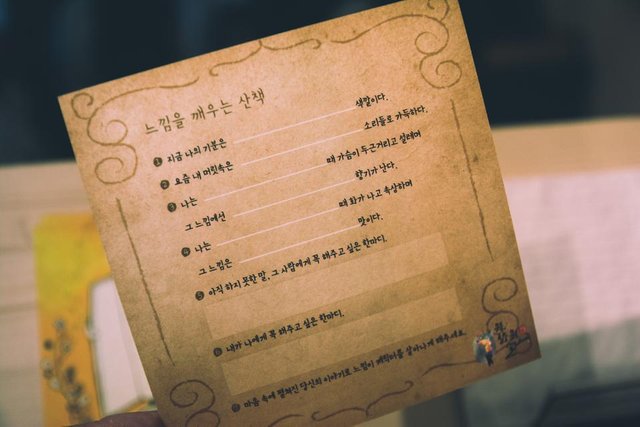 느낌을 깨우는 산책
1 지금 나의 기분은 색깔이다.
2 요즘 내 머릿속은 소리들로 가득하다.
3 나는 때 가슴이 두근거리고 설레며
그 느낌에선 향기가 난다.
4 나는 때 화가 나고 속상하며
그 느낌은 맛이다.
5 아직 하지 못한 말, 그 사람에게 꼭 해주고 싶은 한마디.
6 내가 나에게 꼭 해주고 싶은 한마디.
마음 속에 펼쳐진 당신의 이야기로 느낌이 캐릭터를 살아나게 해주세요.